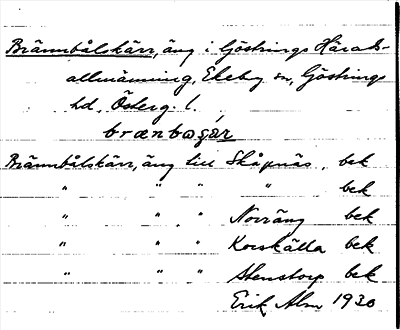 Brännbålskärr, äng i Göstrings Härads-
allmänning, Ekeby sn, Göstrings
hd, Österg. l.
brænbɑs̩ær
Brännbålskärr, äng till Skåpnäs, bek
" " " " bek
" " " Norräng bek
" " " Korskälla bek
" " " Stenstorp bek
Erik Alm 1930